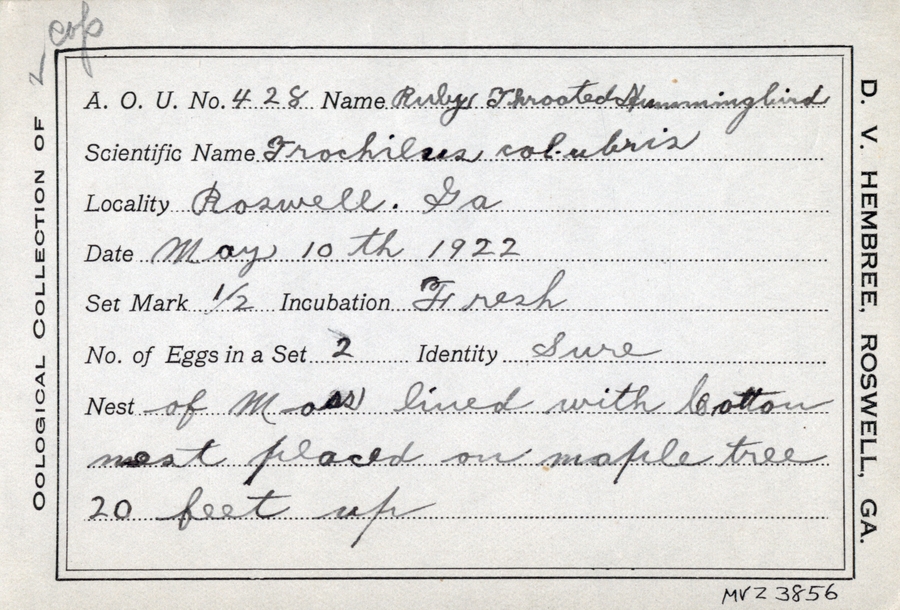 2 cop
OOLOGICAL COLLECTION OF
A. O. U. No. 428 Name Ruby Throated Hummingbird
Scientific Name Trochilus colubris
Locality Roswell. Ga
Date May 10 th 1922
Set Mark 1/2 Incubation Fresh
No. of Eggs in a Set 2 Identity Sure
Nest of Moss lined with Cotton
nest placed on maple tree
20 feet up
D. V. HEMBREE, ROSWELL, GA.
MVZ 3856